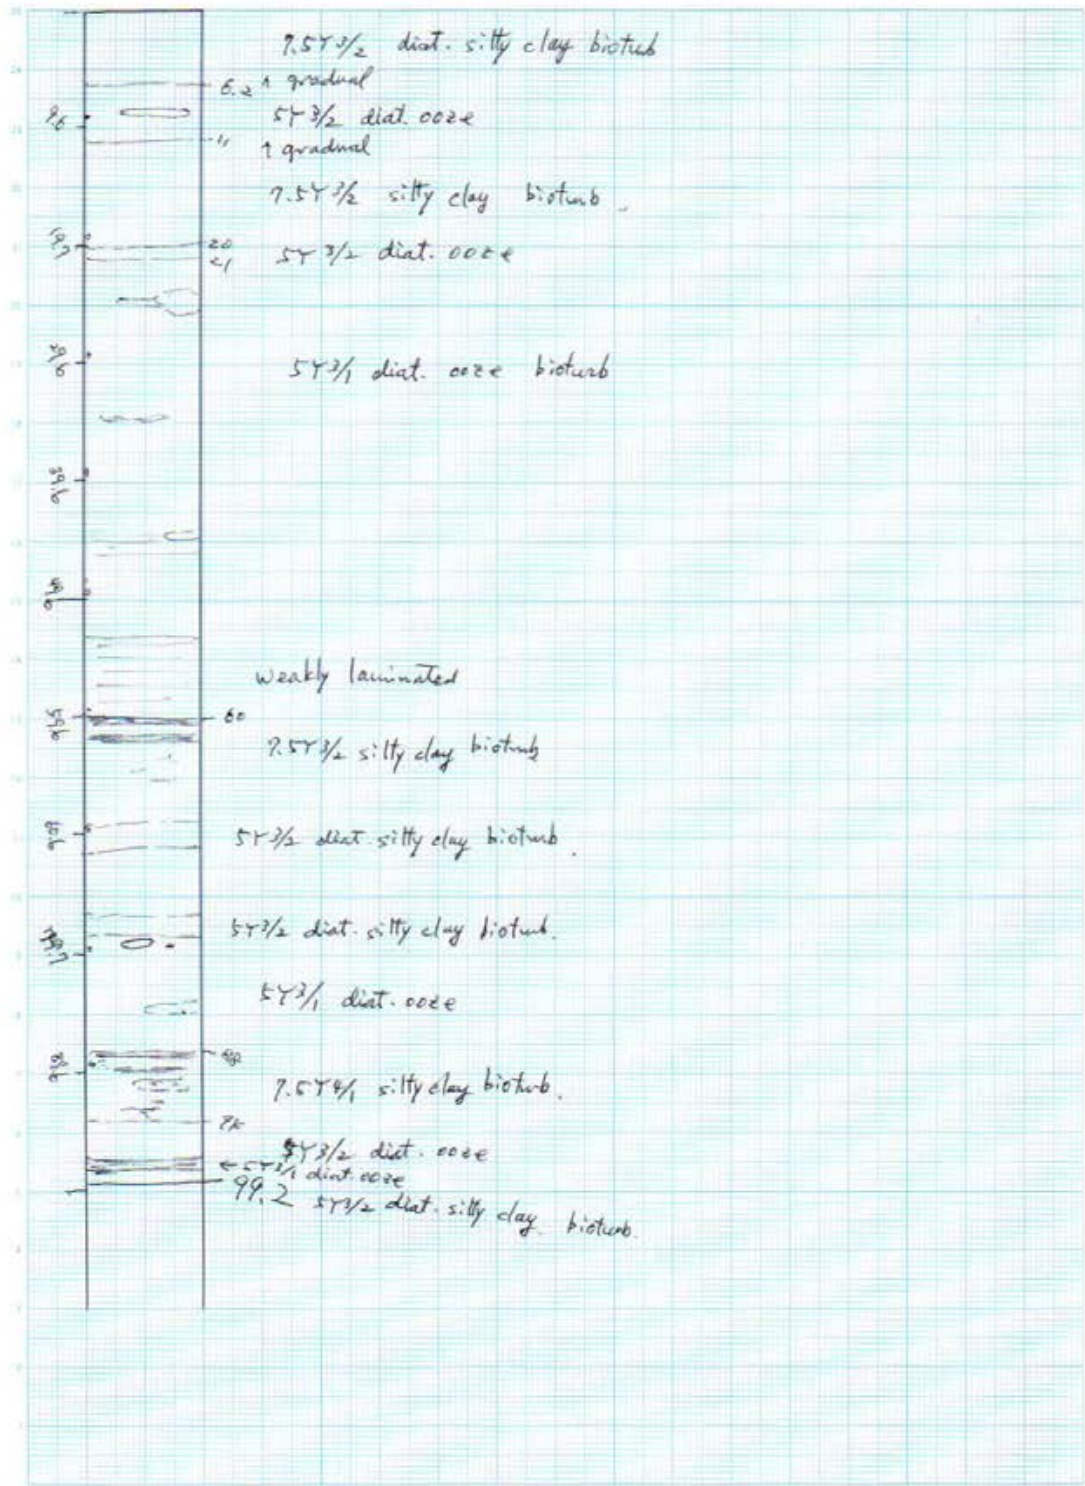 7.5Y3/2 diat. silty clay bioturb
6.2 ↑ gradual
9.6 5Y3/2 diat. ooze
11 ↑ gradual
7.5Y3/2 silty clay bioturb.
19.7 20
21 5Y3/2 diat. ooze
29.6 5Y3/1 diat. ooze bioturb
39.6
49.6
weakly laminated
59.6 60
7.5Y3/2 silty clay bioturb
69.6 5Y3/2 diat. silty clay bioturb.
5Y3/2 diat. silty clay bioturb.
5Y3/1 diat. ooze
89.6
7.5Y4/1 silty clay bioturb.
5Y3/2 diat. ooze
← 5Y3/1 diat. ooze
99.2 5Y3/2 diat. silty clay. bioturb.